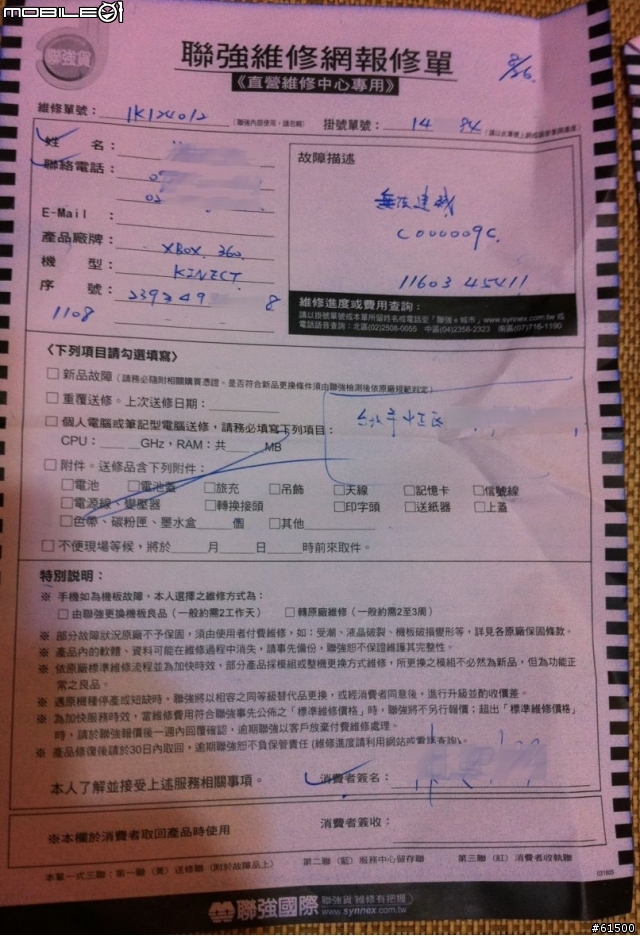 MOBILE01
聯強貨
聯強維修網報修單
《直營維修中心專用》
8/26
維修單號： 1K124012 （聯強內部使用，請勿輯） 掛號單號： 14 84
姓 名：
聯絡電話：
02
E-Mail ：
產品廠牌： XBOX 360
機 型： KINECT
序 號： 239249 8
1108
故障描述
無法連線
C000009C
11603 45411
維修進度或費用查詢：
請以掛號單號或本單所留姓名或電話至「聯強e城市」www.synnex.com.tw 或
電話語音查詢：北區(02)2508-0055 中區(04)2358-2323 南區(07)716-1190
〈下列項目請勾選填寫〉
□ 新品故障（請務必隨附相關購買憑證。是否符合新品更換條件須由聯強檢測後依原廠規範判定）
□ 重覆送修。上次送修日期：
□ 個人電腦或筆記型電腦送修，請務必填寫下列項目：
CPU： GHz，RAM：共 MB
台北市
□ 附件。送修品含下列附件：
□電池 □電池蓋 □旅充 □吊飾 □天線 □記憶卡 □信號線
□電源線、變壓器 □轉換接頭 □印字頭 □送紙器 □上蓋
□色帶、碳粉匣、墨水盒 個 □其他
□ 不便現場等候，將於 月 日 時前來取件。
特別說明：
※ 手機如為機板故障，本人選擇之維修方式為：
□由聯強更換機板良品（一般約需2工作天） □轉原廠維修（一般約需2至3周）
※ 部分故障狀況原廠不予保固，須由使用者付費維修，如：受潮、液晶破裂、機板破損變形等，詳見各原廠保固條款。
※ 產品內的軟體、資料可能在維修過程中消失，請事先備份，聯強恕不保證維護其完整性。
※ 依原廠標準維修流程並為加快時效，部分產品採模組或整機更換方式維修，所更換之模組不必然為新品，但為功能正
常之良品。
※ 遇原機種停產或短缺時，聯強將以相容之同等級替代品更換，或經消費者同意後，進行升級並酌收價差。
※ 為加快服務時效，當維修費用符合聯強事先公佈之「標準維修價格」時，聯強將不另行報價；超出「標準維修價格」
時，請於聯強報價後一週內回覆確認，逾期聯強以客戶放棄付費維修處理。
※ 產品修復後請於30日內取回，逾期聯強恕不負保管責任 (維修進度請利用網站或電話查詢)。
本人了解並接受上述服務相關事項。 消費者簽名：
※本欄於消費者取回產品時使用 消費者簽收：
本單一式三聯：第一聯（黃）送修聯（附於故障品上） 第二聯（藍）服務中心留存聯 第三聯（紅）消費者收執聯
聯強國際 聯強貨 維修有把握
www.synnex.com.tw
#61500